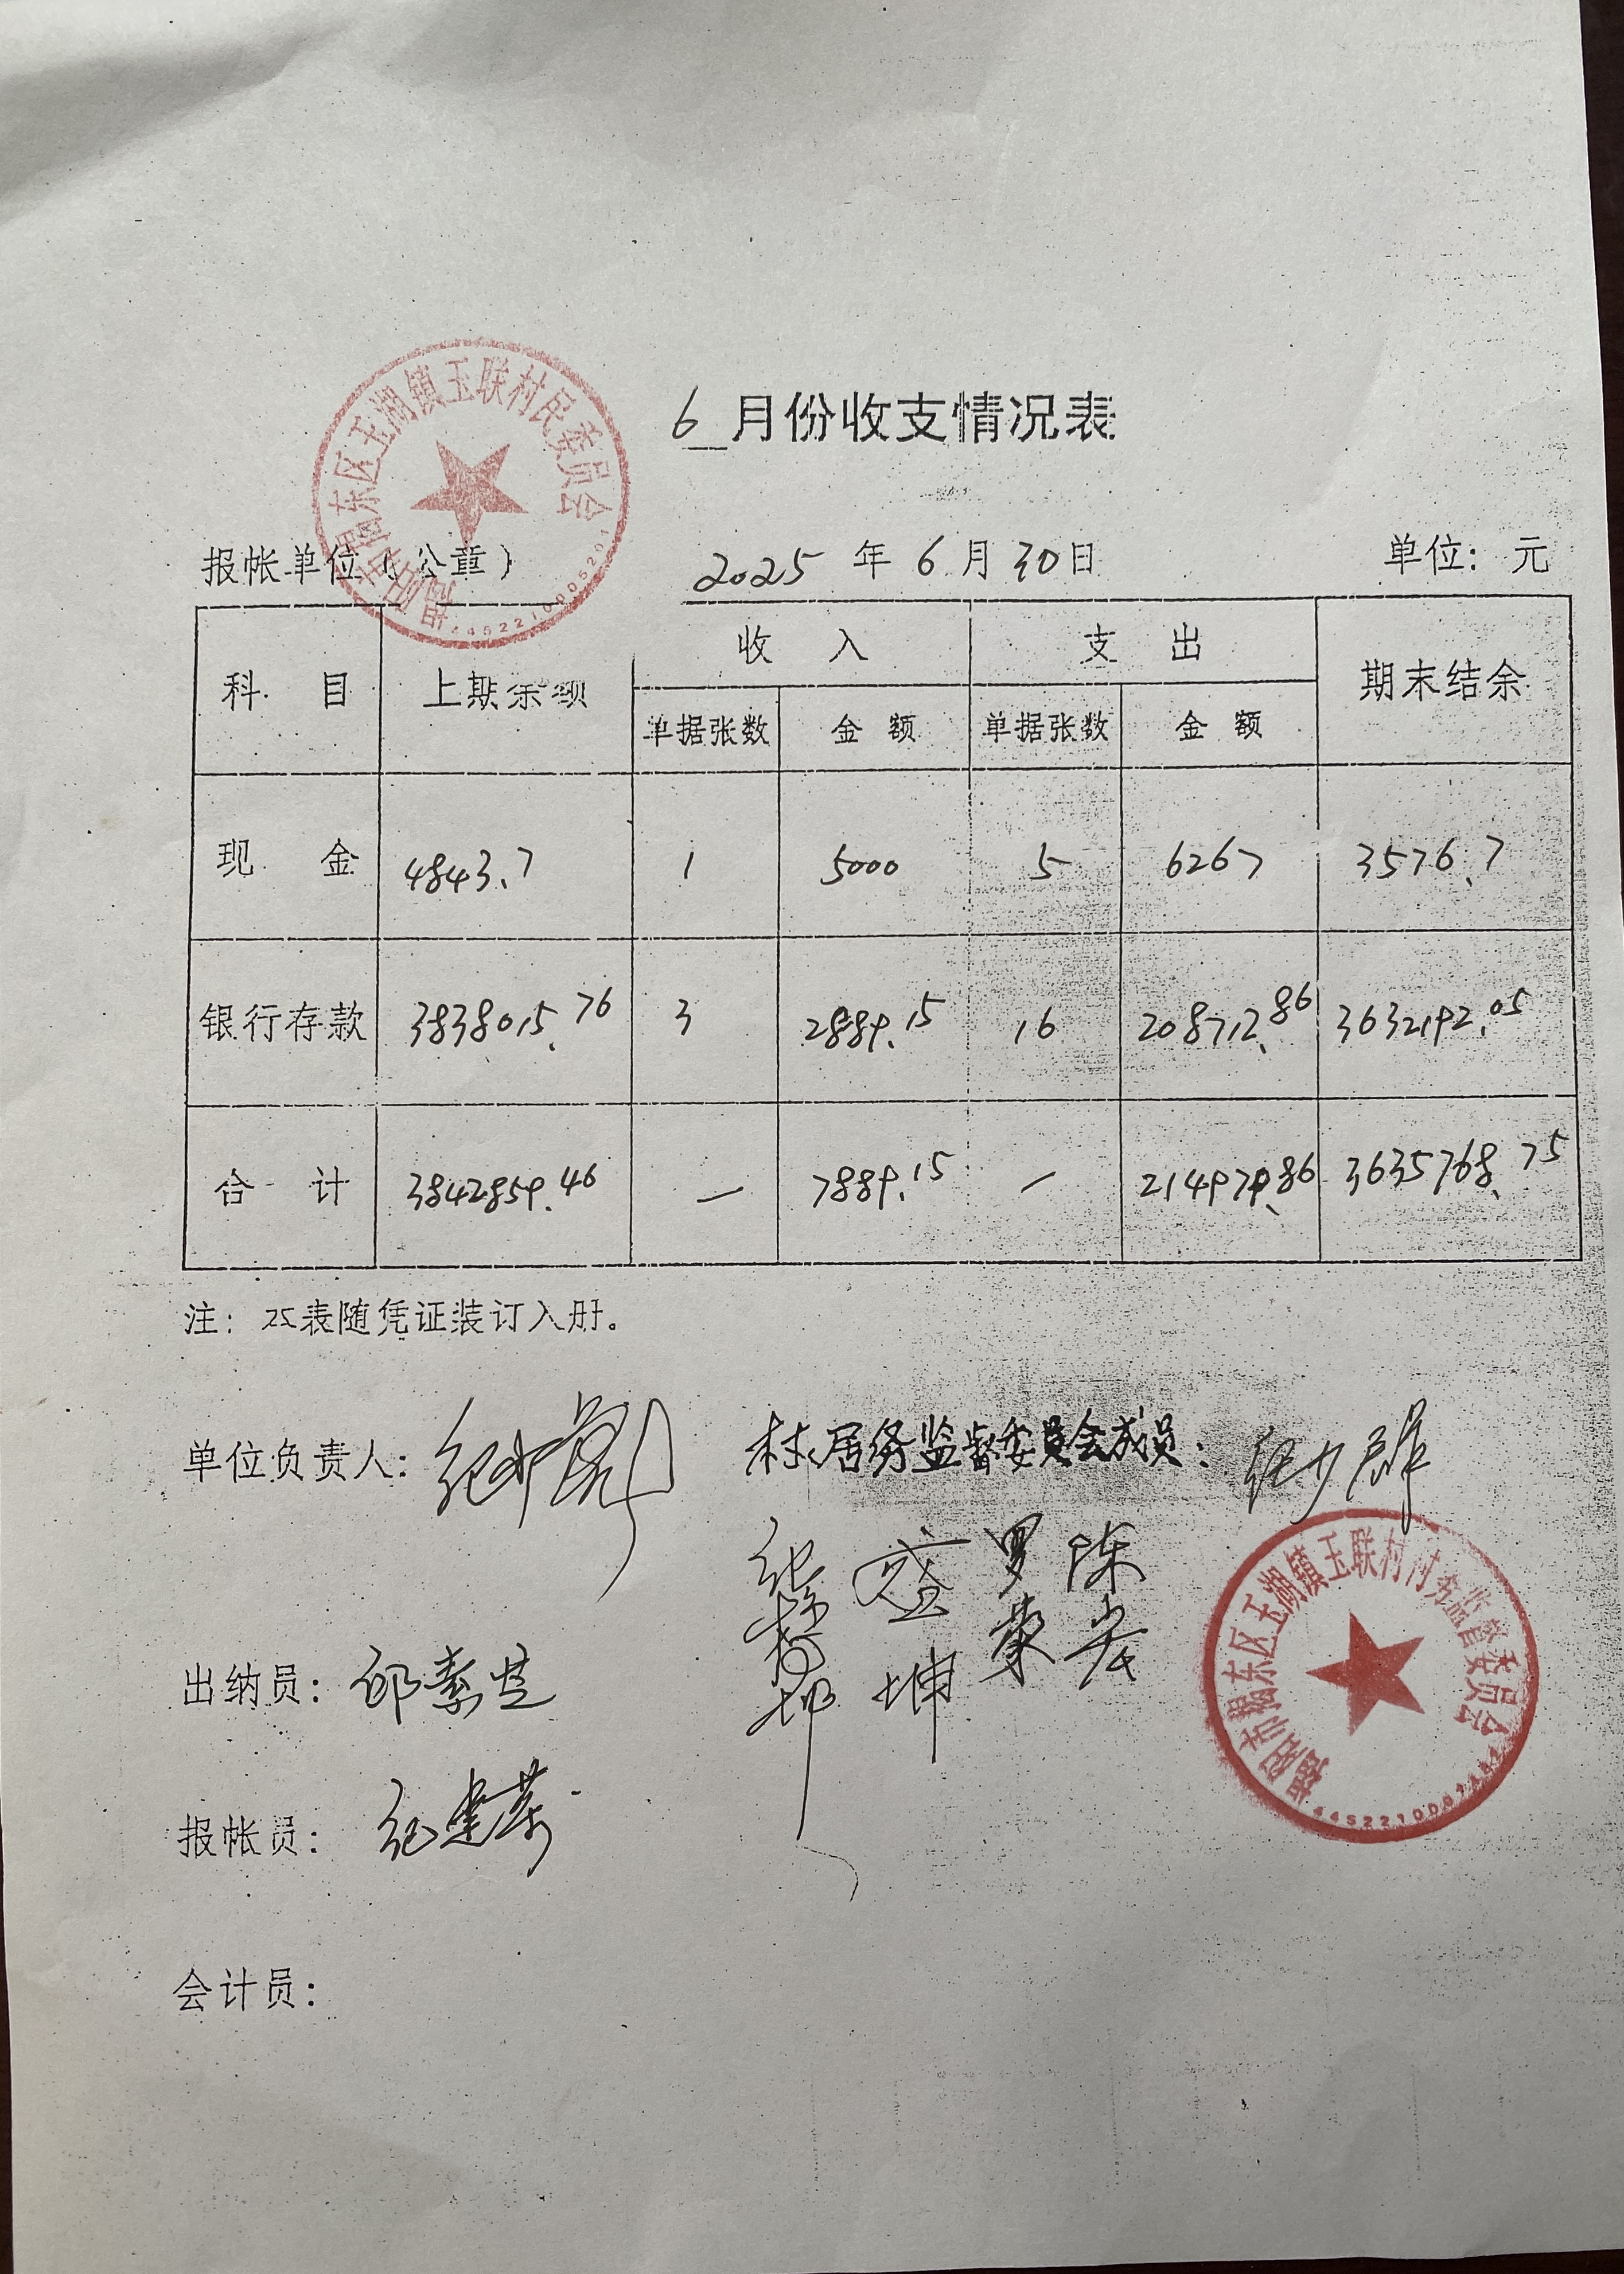 揭阳市揭东区玉湖镇玉联村民委员会
6 月份收支情况表
报帐单位（公章） 2025 年 6 月 30 日 单位：元
科 目 上期余额 收 入 支 出 期末结余
单据张数 金 额 单据张数 金 额
现 金 4843.7 1 5000 5 6267 3576.7
银行存款 3838015.76 3 2889.15 16 208712.86 3632192.05
合 计 3842859.46 — 7889.15 — 214979.86 3635768.75
注：本表随凭证装订入册。
单位负责人： 村居务监督委员会成员：纪少群
盛坤 罗荣 陈宏
揭阳市揭东区玉湖镇玉联村村务监督委员会
出纳员：邱素芝
报帐员：
会计员：